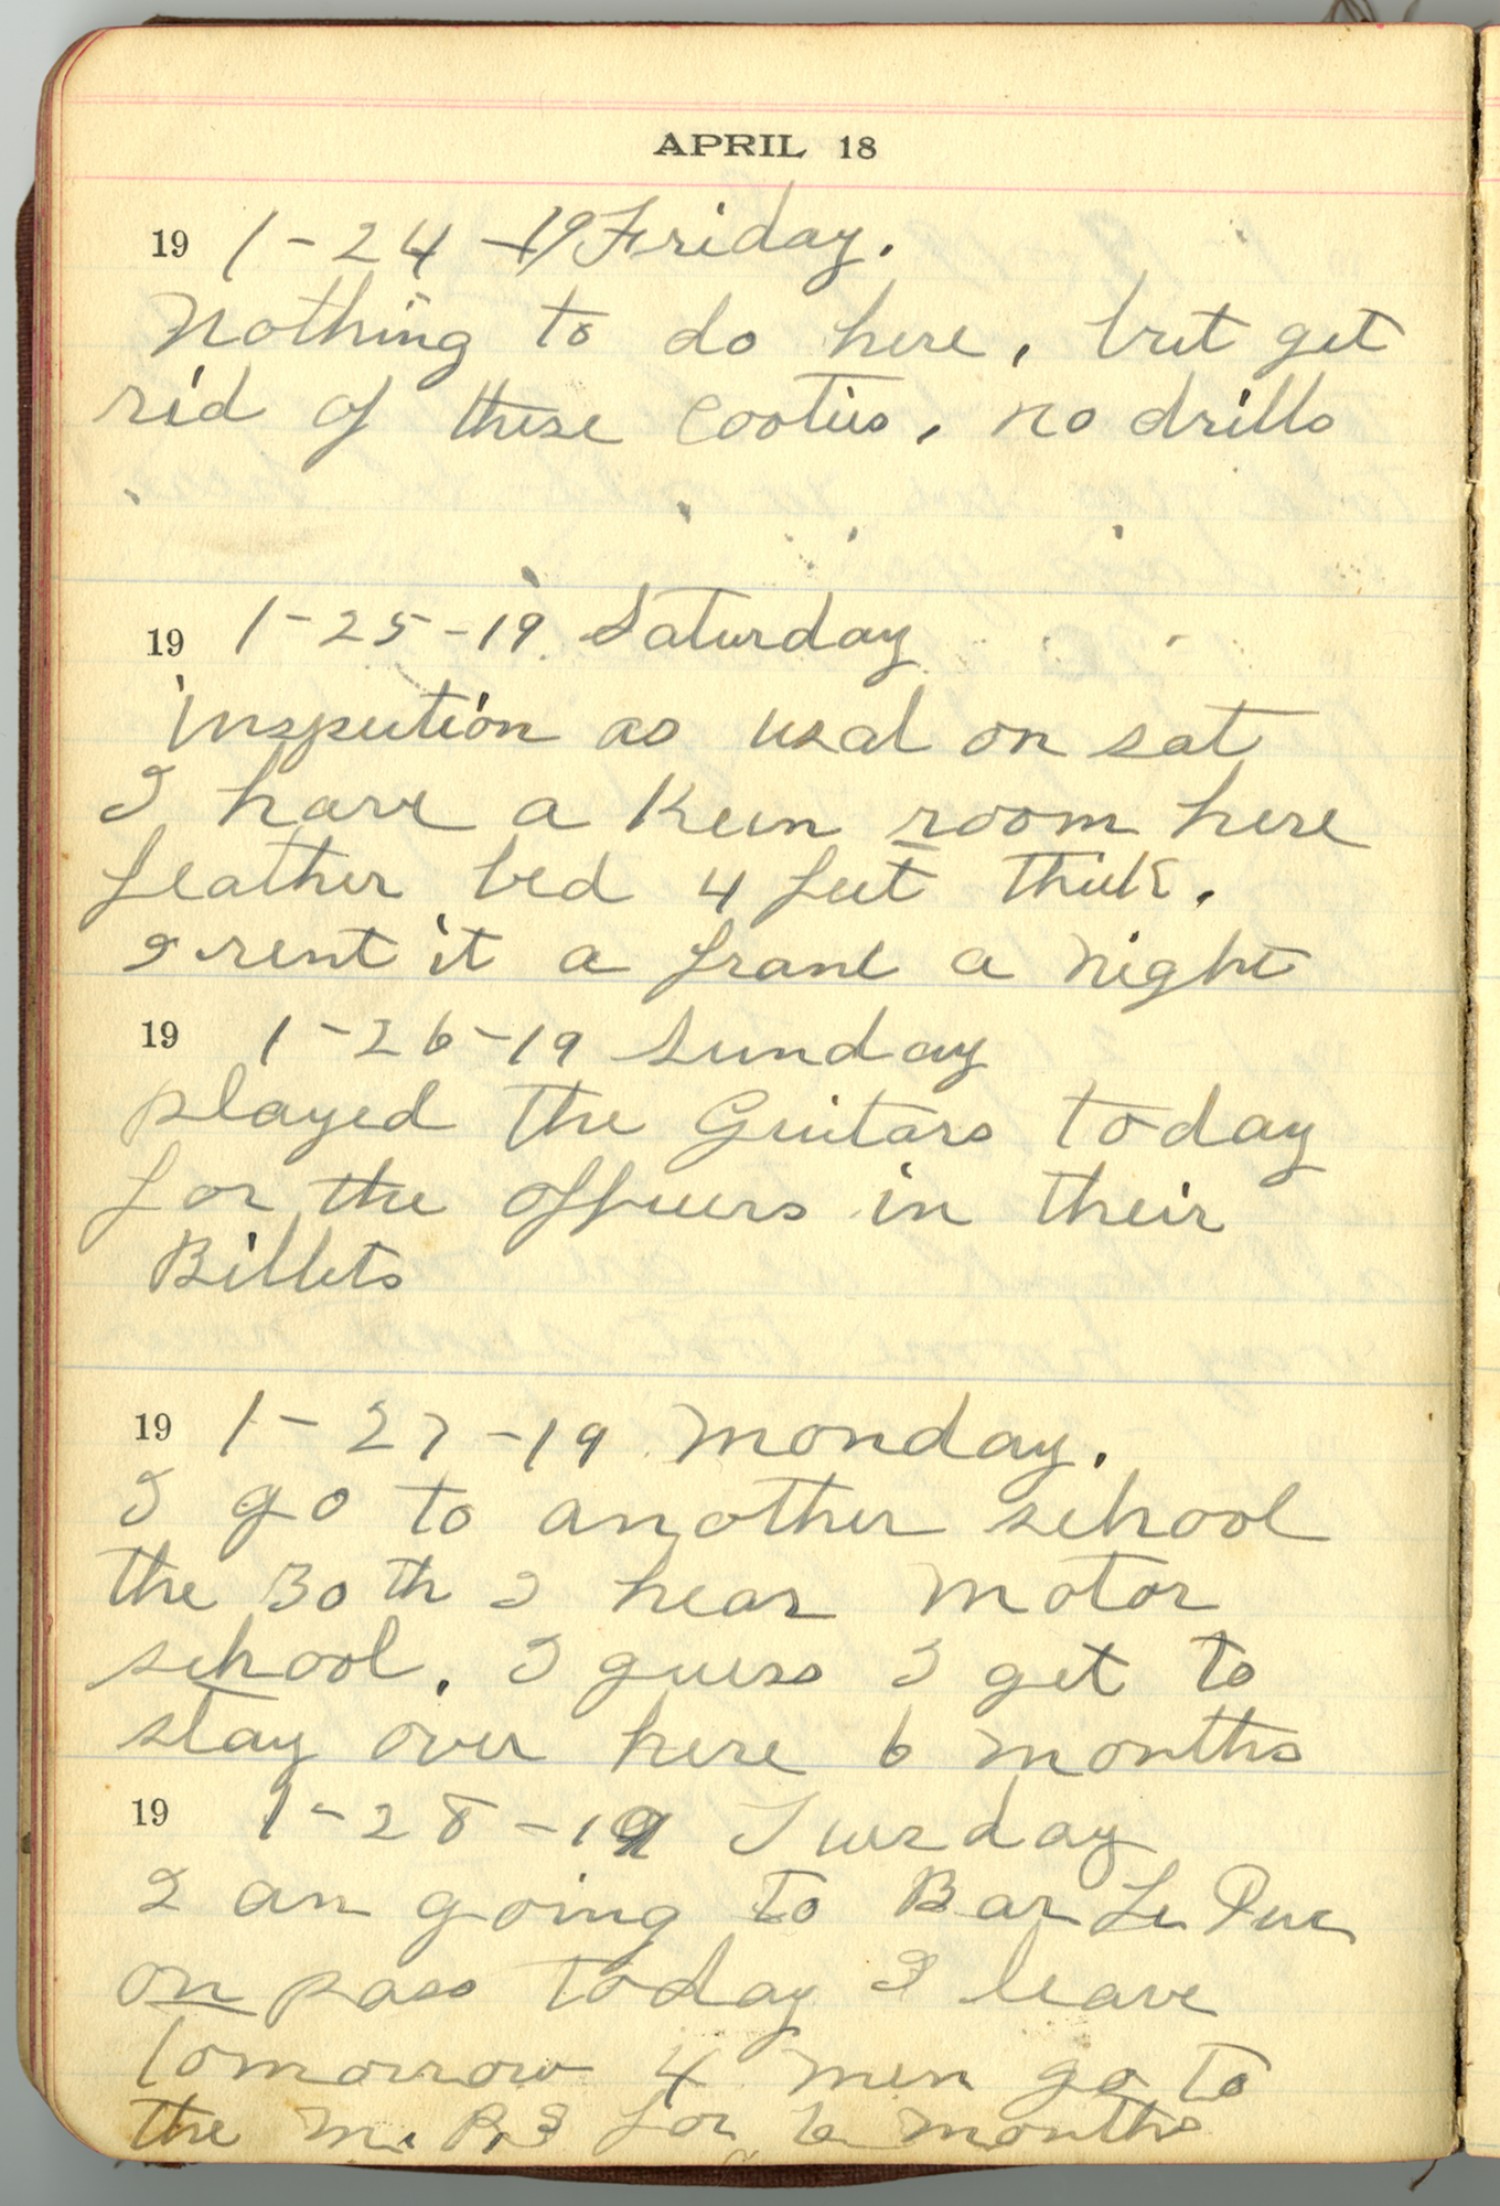 APRIL 18
19 1-24-19 Friday.
Nothing to do here, but get
rid of these Cooties, no drills
19 1-25-19 Saturday
inspection as usal on sat
I have a Keen room here
feather bed 4 feet thick.
I rent it a franc a night
19 1-26-19 Sunday
played the Guitars today
for the officers in their
Billets
19 1-27-19 Monday.
I go to another school
the 30th I hear Motor
school. I guess I get to
stay over here 6 months
19 1-28-19 Tuesday
I am going to Bar Le Duc
on pass today I leave
tomorrow 4 men go to
the M. P.s for 6 months